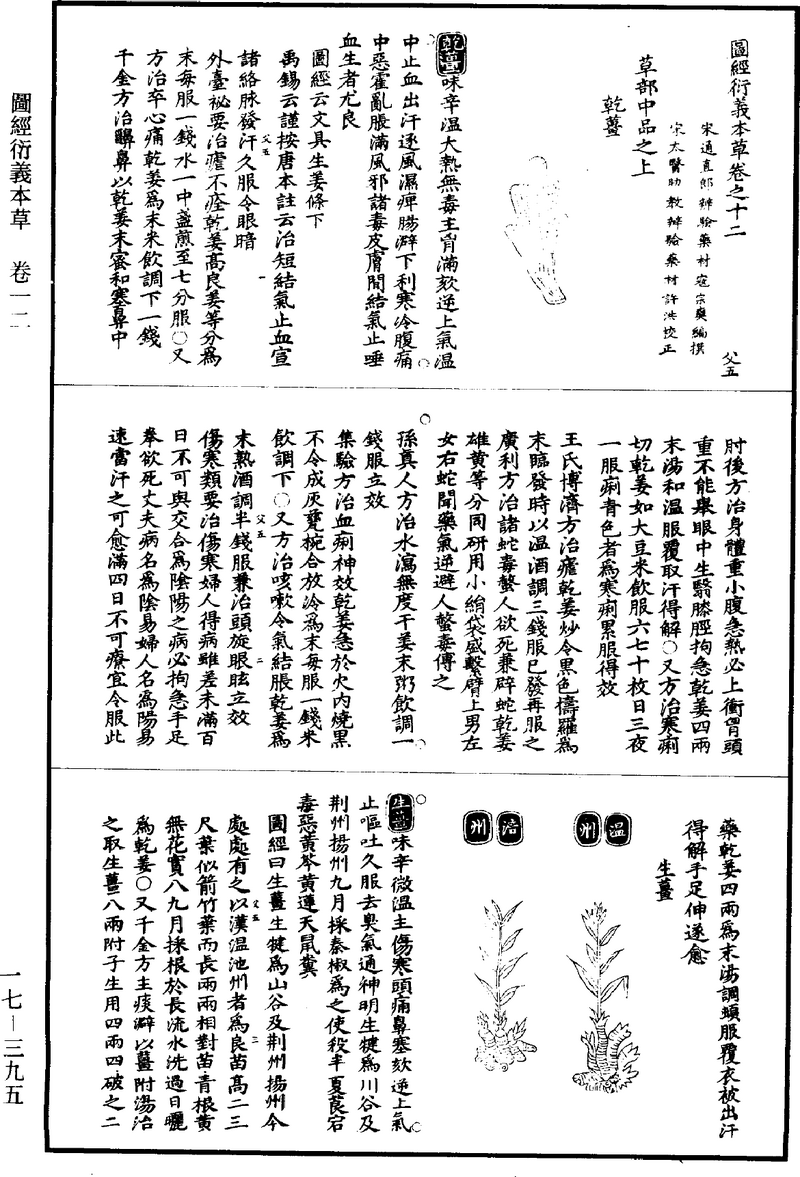 圖經衍義本草卷之十二
父五
宋通直郎辨驗藥材寇宗奭編撰
宋太醫助教辨驗藥材許洪校正
草部中品之上
乾薑
乾薑味辛溫大熱無毒主胷滿欬逆上氣溫
中止血出汗逐風濕痺腸澼下利寒冷腹痛
中惡霍亂脹滿風邪諸毒皮膚間結氣止唾
血生者尤良
圖經云文具生姜條下
禹錫云謹按唐本註云治短結氣止血宣
諸絡脉發汗久服令眼暗
父五
一
外臺祕要治瘧不痊乾姜高良姜等分爲
末每服一錢水一中盞煎至七分服○又
方治卒心痛乾姜爲末米飲調下一錢
千金方治齆鼻以乾姜末蜜和塞鼻中
肘後方治身體重小腹急熱必上衝胷頭
重不能舉眼中生瞖膝脛拘急乾姜四兩
末湯和溫服覆取汗得解○又方治寒痢
切乾姜如大豆米飲服六七十枚日三夜
一服痢青色者爲寒痢累服得效
王氏博濟方治瘧乾姜炒令黑色擣羅爲
末臨發時以温酒調三錢服已發再服之
廣利方治諸蛇毒螫人欲死兼辟蛇乾姜
雄黃等分同研用小絹袋盛繫臂上男左
女右蛇聞藥氣逆避人螫毒傅之
孫真人方治水瀉無度干姜末粥飲調一
錢服立效
集驗方治血痢神效乾姜急於火内燒黑
不令成灰甆椀合放冷爲末每服一錢米
飲調下○又方治咳嗽令氣結脹乾姜爲
末熟酒調半錢服兼治頭旋眼眩立效
父五
二
傷寒類要治傷寒婦人得病雖差未滿百
日不可與交合爲陰陽之病必拘急手足
拳欲死丈夫病名爲陰易婦人名爲陽易
速當汗之可愈滿四日不可療宜令服此
藥乾姜四兩爲末湯調頓服覆衣被出汗
得解手足伸遂愈
生薑
溫州
涪州
生薑味辛微溫主傷寒頭痛鼻塞欬逆上氣
止嘔吐久服去臭氣通神明生犍爲川谷及
荆州揚州九月採秦椒爲之使殺半夏莨宕
毒惡黃芩黃連天鼠糞
圖經曰生薑生犍爲山谷及荆州揚州今
處處有之以漢溫池州者爲良苗高二三
父五
三
尺葉似箭竹葉而長兩兩相對苗青根黃
無花實八九月採根於長流水洗過日曬
爲乾姜○又千金方主痰澼以薑附湯治
之取生薑八兩附子生用四兩四破之二
圖經衍義本草 卷一二
一七－三九五